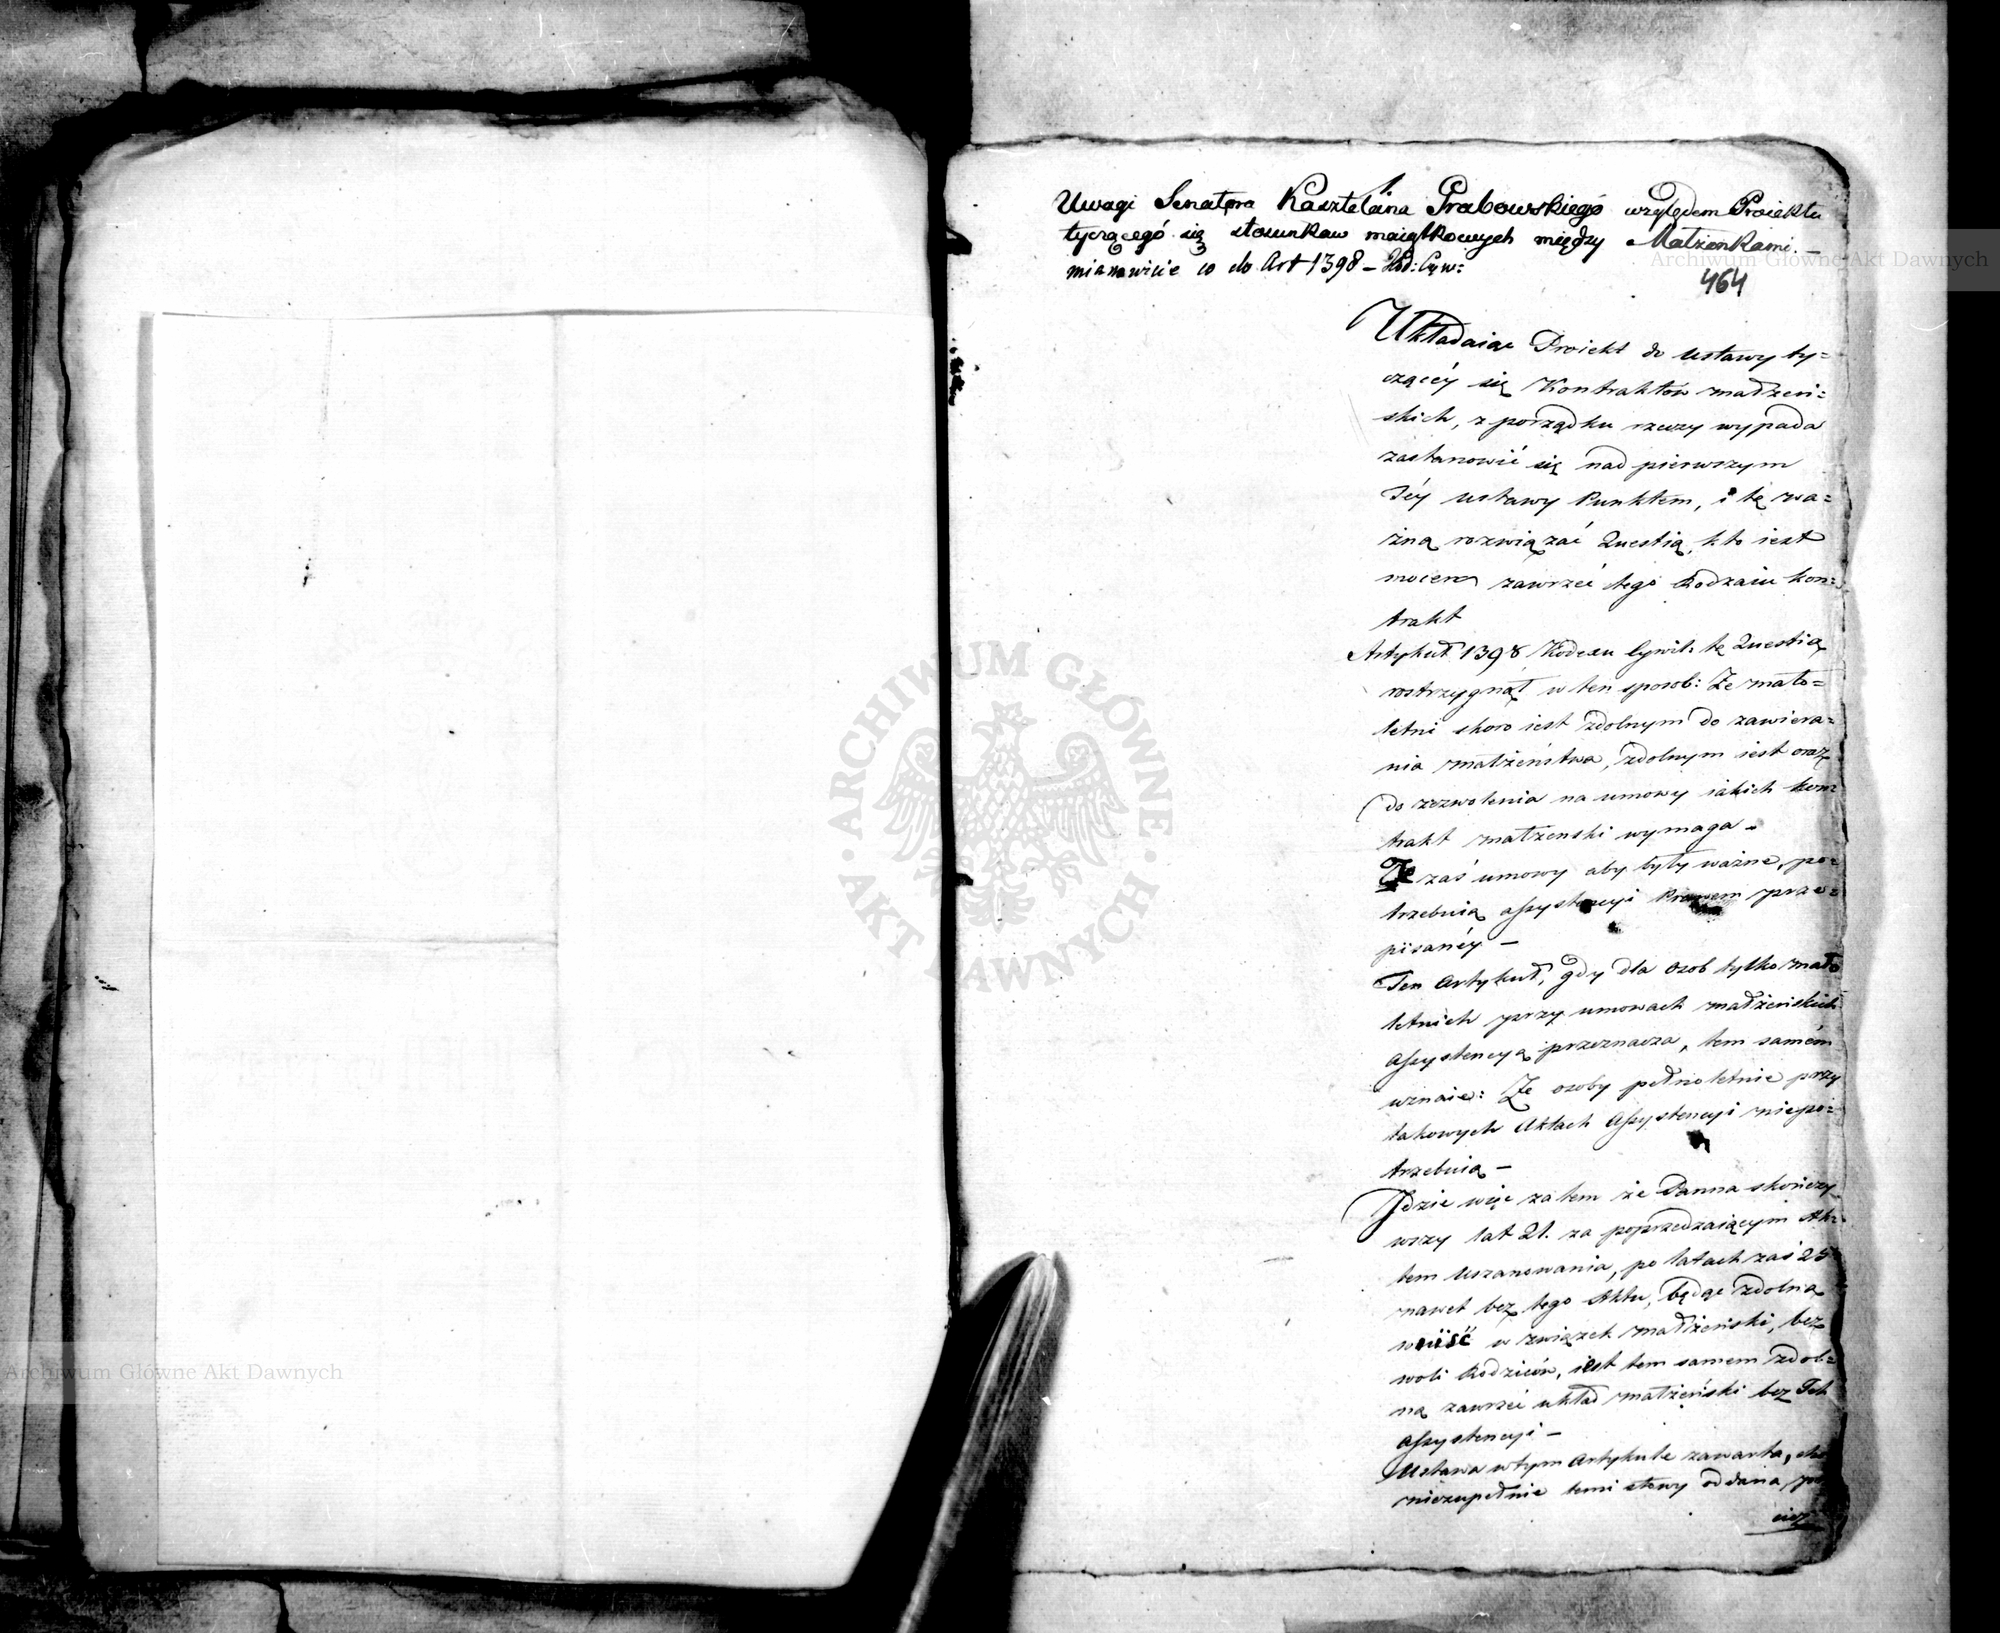 Uwagi Senatora Kasztelana Grabowskiego względem Proiektu
tyczącego się stosunkow maiątkowych między Małżonkami. –
mianowicie co do Art 1398 – Kod: Cyw:
464
Układaiąc Proiekt do ustawy ty=
czącéy się Kontraktow małżeń=
skich, z porządku rzeczy wypada
zastanowić się nad pierwszym
Téy ustawy Punktem, i tę wa=
żną rozwiązać Questią, kto iest
mocen zawrzeć tego Rodzaiu kon=
trakt
Artykuł 1398 Kodexu Cywil: tę Questią
rostrzygnął w ten sposob: Że mało=
letni skoro iest zdolnym do zawiera=
nia małżeństwa, zdolnym iest oraz
do zezwolenia na umowy iakich kon=
trakt małżenski wymaga.
Te zaś umowy aby były ważne, po=
trzebuią assystencyi Prawem prze=
pisanéy –
Ten Artykuł, gdy dla osob tylko mało
letnich przy umowach małżeńskich
assystencyą przeznacza, tem samém
uznaie: Że osoby pełnoletnie przy
takowych Aktach Assystencyi niepo=
trzebuią –
Jdzie więc zatem że Panna skończy=
wszy lat 21. za poprzedzaiącym Ak=
tem Uszanowania, po latach zaś 25
nawet bez tego Aktu, będąc zdolną
wniiść w związek małżeński, bez
woli Rodziców, iest tem samem zdol=
ną zawrzeć układ małżeński bez Ich
Assystencyi –
Ustawa w tym Artykule zawarta, cho
niezupełnie temi słowy oddana, po
cież
ARCHIWUM GŁÓWNE
AKT DAWNYCH
Archiwum Główne Akt Dawnych
Archiwum Główne Akt Dawnych